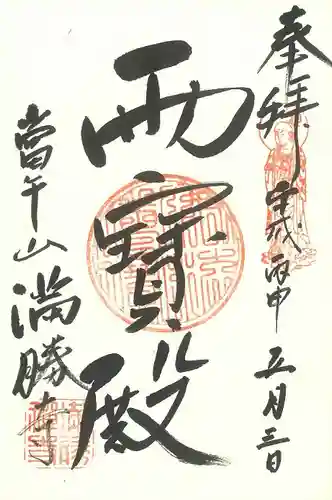 奉拝
平成丙申 五月三日
雨寶殿
當午山
満勝寺